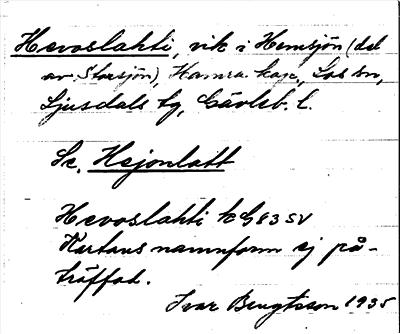 Hevoslahti, vik i Hemsjön (del
av Storsjön), Hamra kap., Los sn,
Ljusdals tg, Gävleb. l.
Se. Hejonlatt
Hevoslahti tc G83SV
Kartans namnform ej på-
träffad.
Ivar Bengtsson 1935